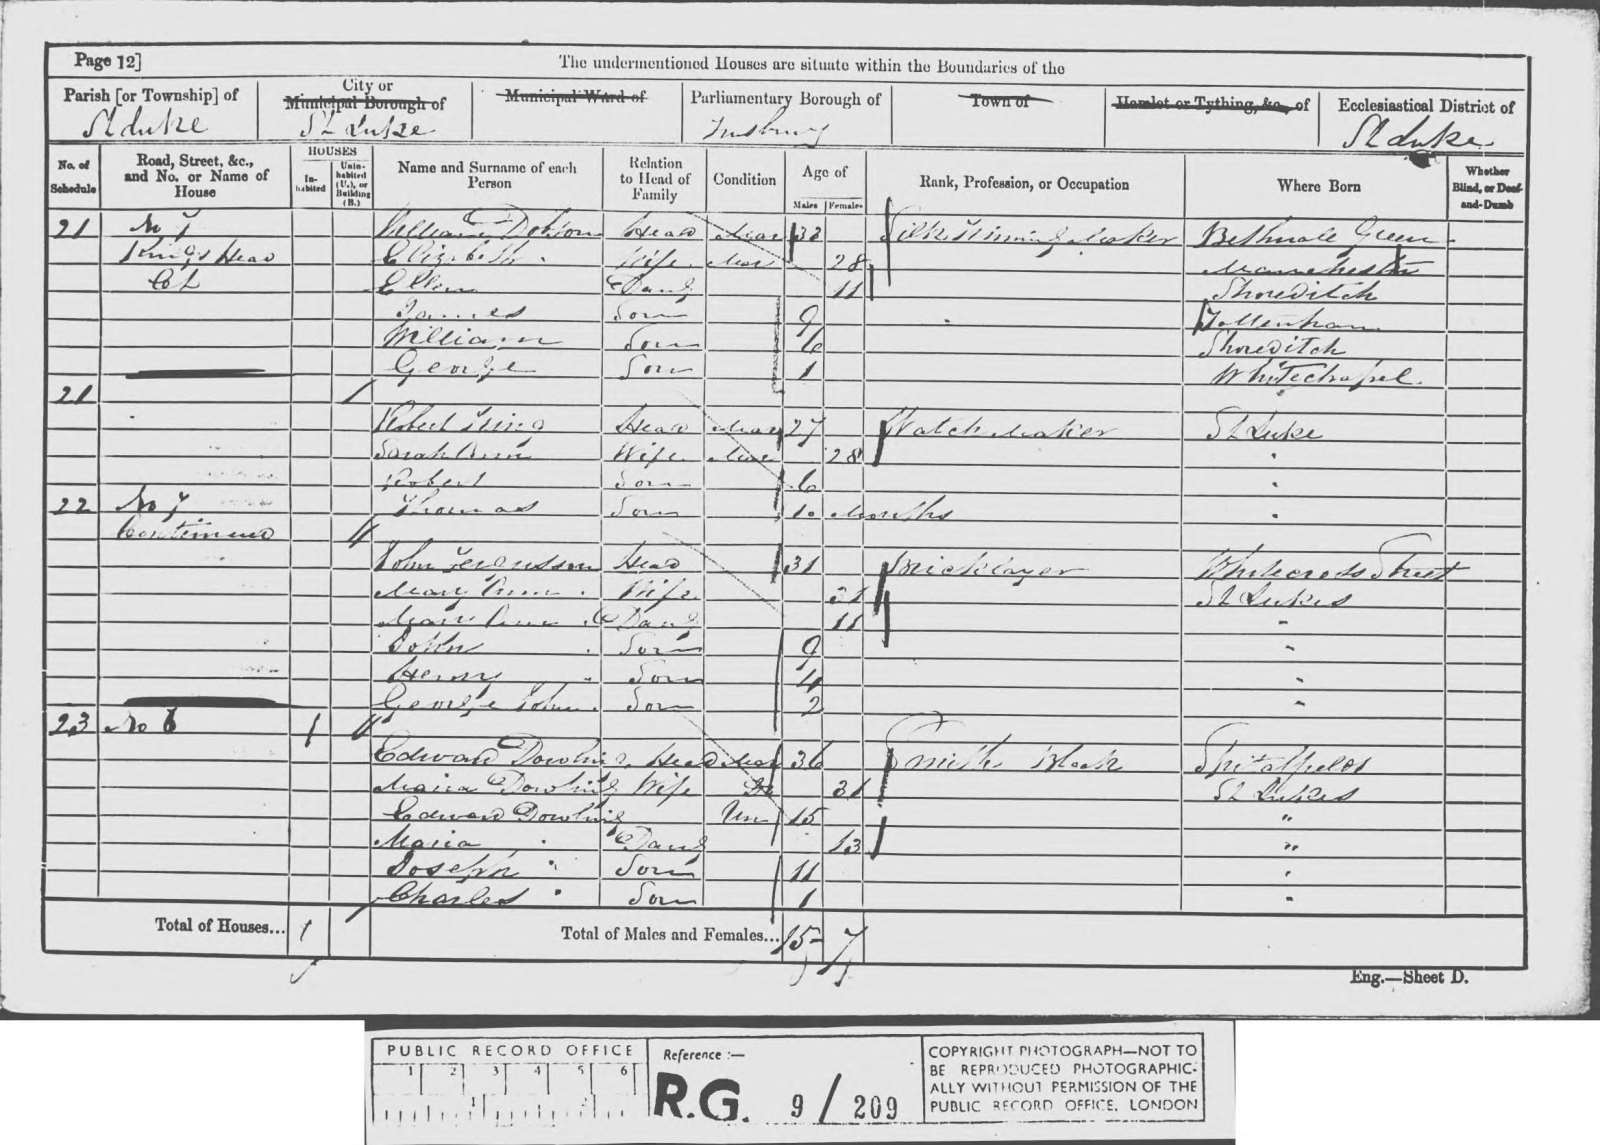 Page 12]
The undermentioned Houses are situate within the Boundaries of the
Parish [or Township] of
City or Municipal Borough of
Municipal Ward of
Parliamentary Borough of
Town of
Hamlet or Tything, &c., of
Ecclesiastical District of
St Luke St Luke Finsbury St Luke
No. of Schedule
Road, Street, &c., and No. or Name of House
HOUSES
In-habited
Unin-habited (U.), or Building (B.)
Name and Surname of each Person
Relation to Head of Family
Condition
Age of
Males Females
Rank, Profession, or Occupation
Where Born
Whether Blind, or Deaf-and-Dumb
21 No 7 William Dobson Head Mar 33 Bethnale Green
Kings Head Elizabeth Wife Mar 28 Manchester
Ct Ellen Daug 11 Shoreditch
James Son 9 Tottenham
William Son 6 Shoreditch
George Son 1 Whitechapel
21
Robert King Head Mar 27 Watch Maker St Luke
Sarah Ann Wife Mar 28 "
Robert Son 6 "
22 No 7 Thomas Son 10 Months "
Continued
John Fergusson Head 31 Bricklayer Whitecross Street
Mary Ann Wife 31 St Lukes
Mary Ann Daug 11 "
John Son 9 "
Henry Son 4 "
George John Son 2 "
23 No 6 1
Edward Dowling Head Mar 36 Smith Black Spitalfields
Maria Dowling Wife Do 31 St Lukes
Edward Dowling Un 15 "
Maria " Daug 13 "
Joseph " Son 11 "
Charles " Son 1 "
Total of Houses... 1 Total of Males and Females... 15 7
Eng.—Sheet D.
PUBLIC RECORD OFFICE
1 2 3 4 5 6
Reference :—
R.G. 9/209
COPYRIGHT PHOTOGRAPH—NOT TO
BE REPRODUCED PHOTOGRAPHIC-
ALLY WITHOUT PERMISSION OF THE
PUBLIC RECORD OFFICE, LONDON